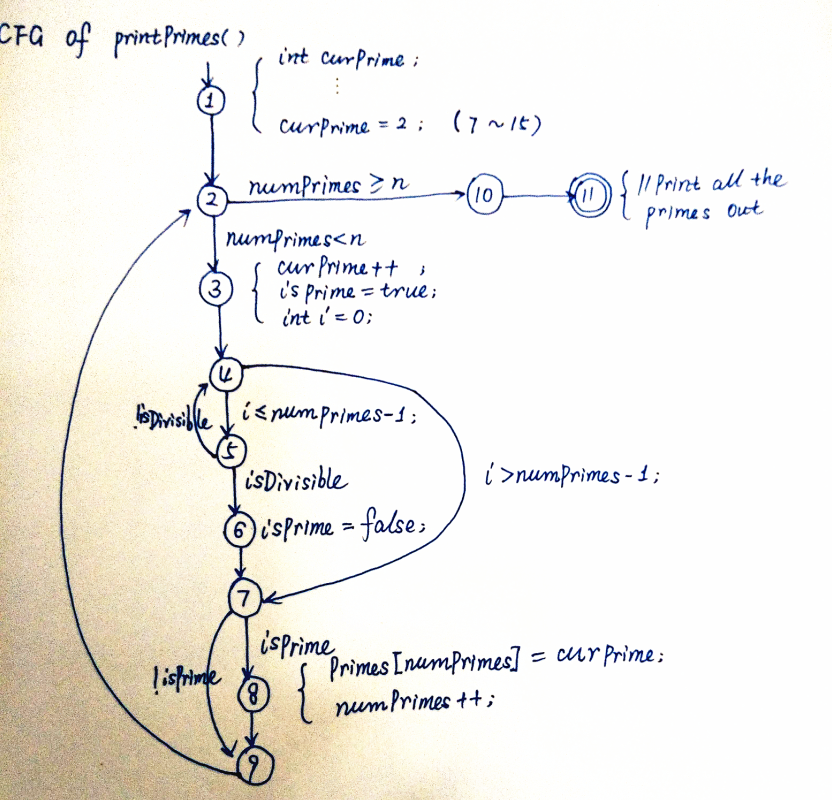 CFG of printPrimes()
int curPrime ;
⋮
1
curPrime = 2 ; (7 ~ 15)
numPrimes ≥ n
2
10
11
// Print all the
primes out
numPrimes<n
curPrime++ ;
3
isPrime = true;
int i = 0;
4
!isDivisible
i ≤ numPrimes-1;
5
isDivisible
i >numPrimes-1;
6
isPrime = false;
7
isPrime
Primes[numPrimes] = curPrime;
!isPrime
8
numPrimes++;
9